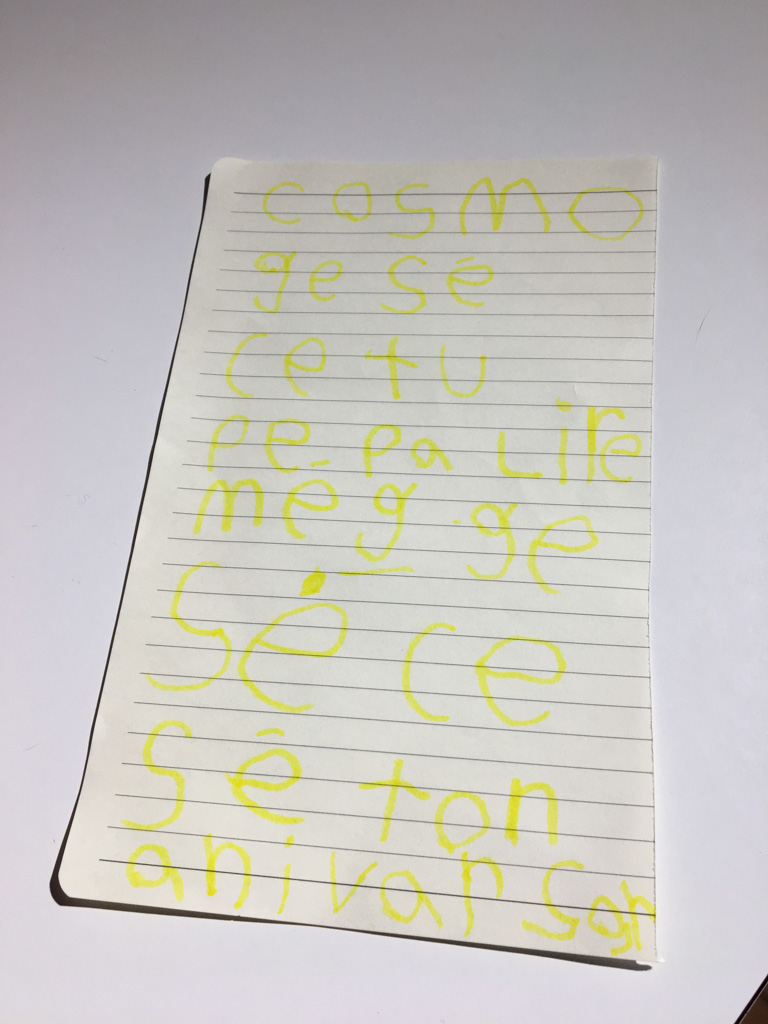 cosmo
ge sé
ce tu
pe pa lire
mé g ge
sé ce
sé ton
anivarsar